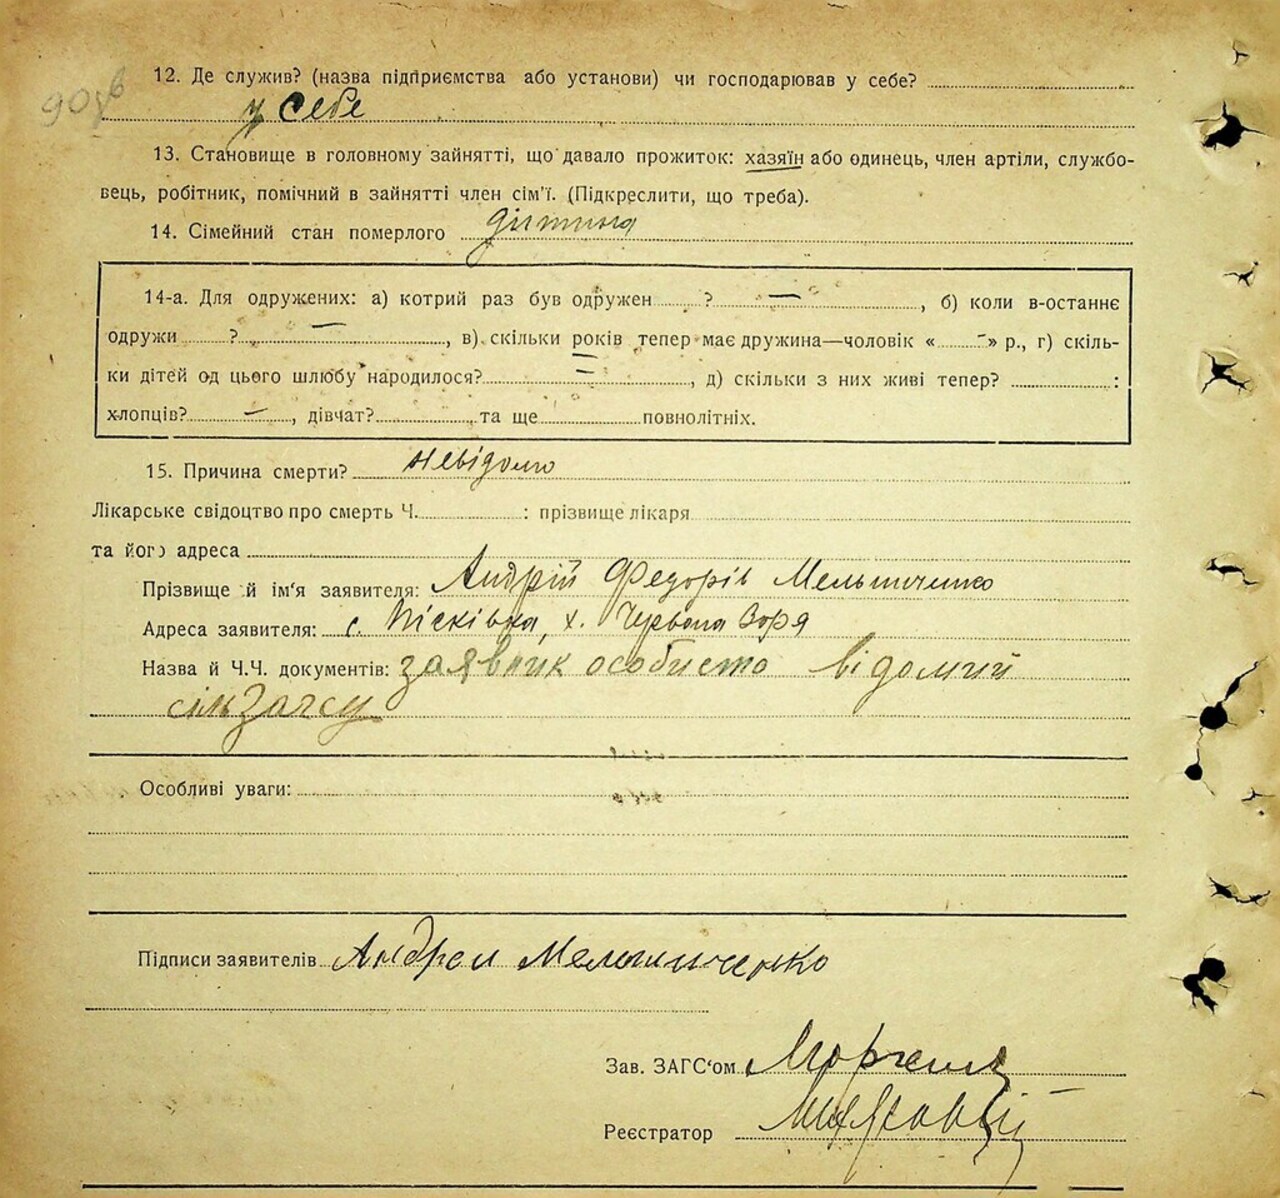 12. Де служив? (назва підприємства або установи) чи господарював у себе?
у себе
13. Становище в головному зайнятті, що давало прожиток: хазяїн або одинець, член артіли, службо-
вець, робітник, помічний в зайнятті член сім'ї. (Підкреслити, що треба).
14. Сімейний стан померлого дитина
14-а. Для одружених: а) котрий раз був одружен ? —, б) коли в-останнє
одружи ? —, в) скільки років тепер має дружина—чоловік « - » р., г) скіль-
ки дітей од цього шлюбу народилося? —, д) скільки з них живі тепер? :
хлопців? —, дівчат? та ще повнолітніх.
15. Причина смерти? невідомо
Лікарське свідоцтво про смерть Ч. : прізвище лікаря
та його адреса
Прізвище й ім'я заявителя: Андрій Федорів Мельниченко
Адреса заявителя: с. Пісківка, х. Червона Зоря
Назва й Ч.Ч. документів: заявник особисто відомий
сільЗагсу
Особливі уваги:
Підписи заявителів Андреи Мельниченко
Зав. ЗАГС'ом
Реєстратор